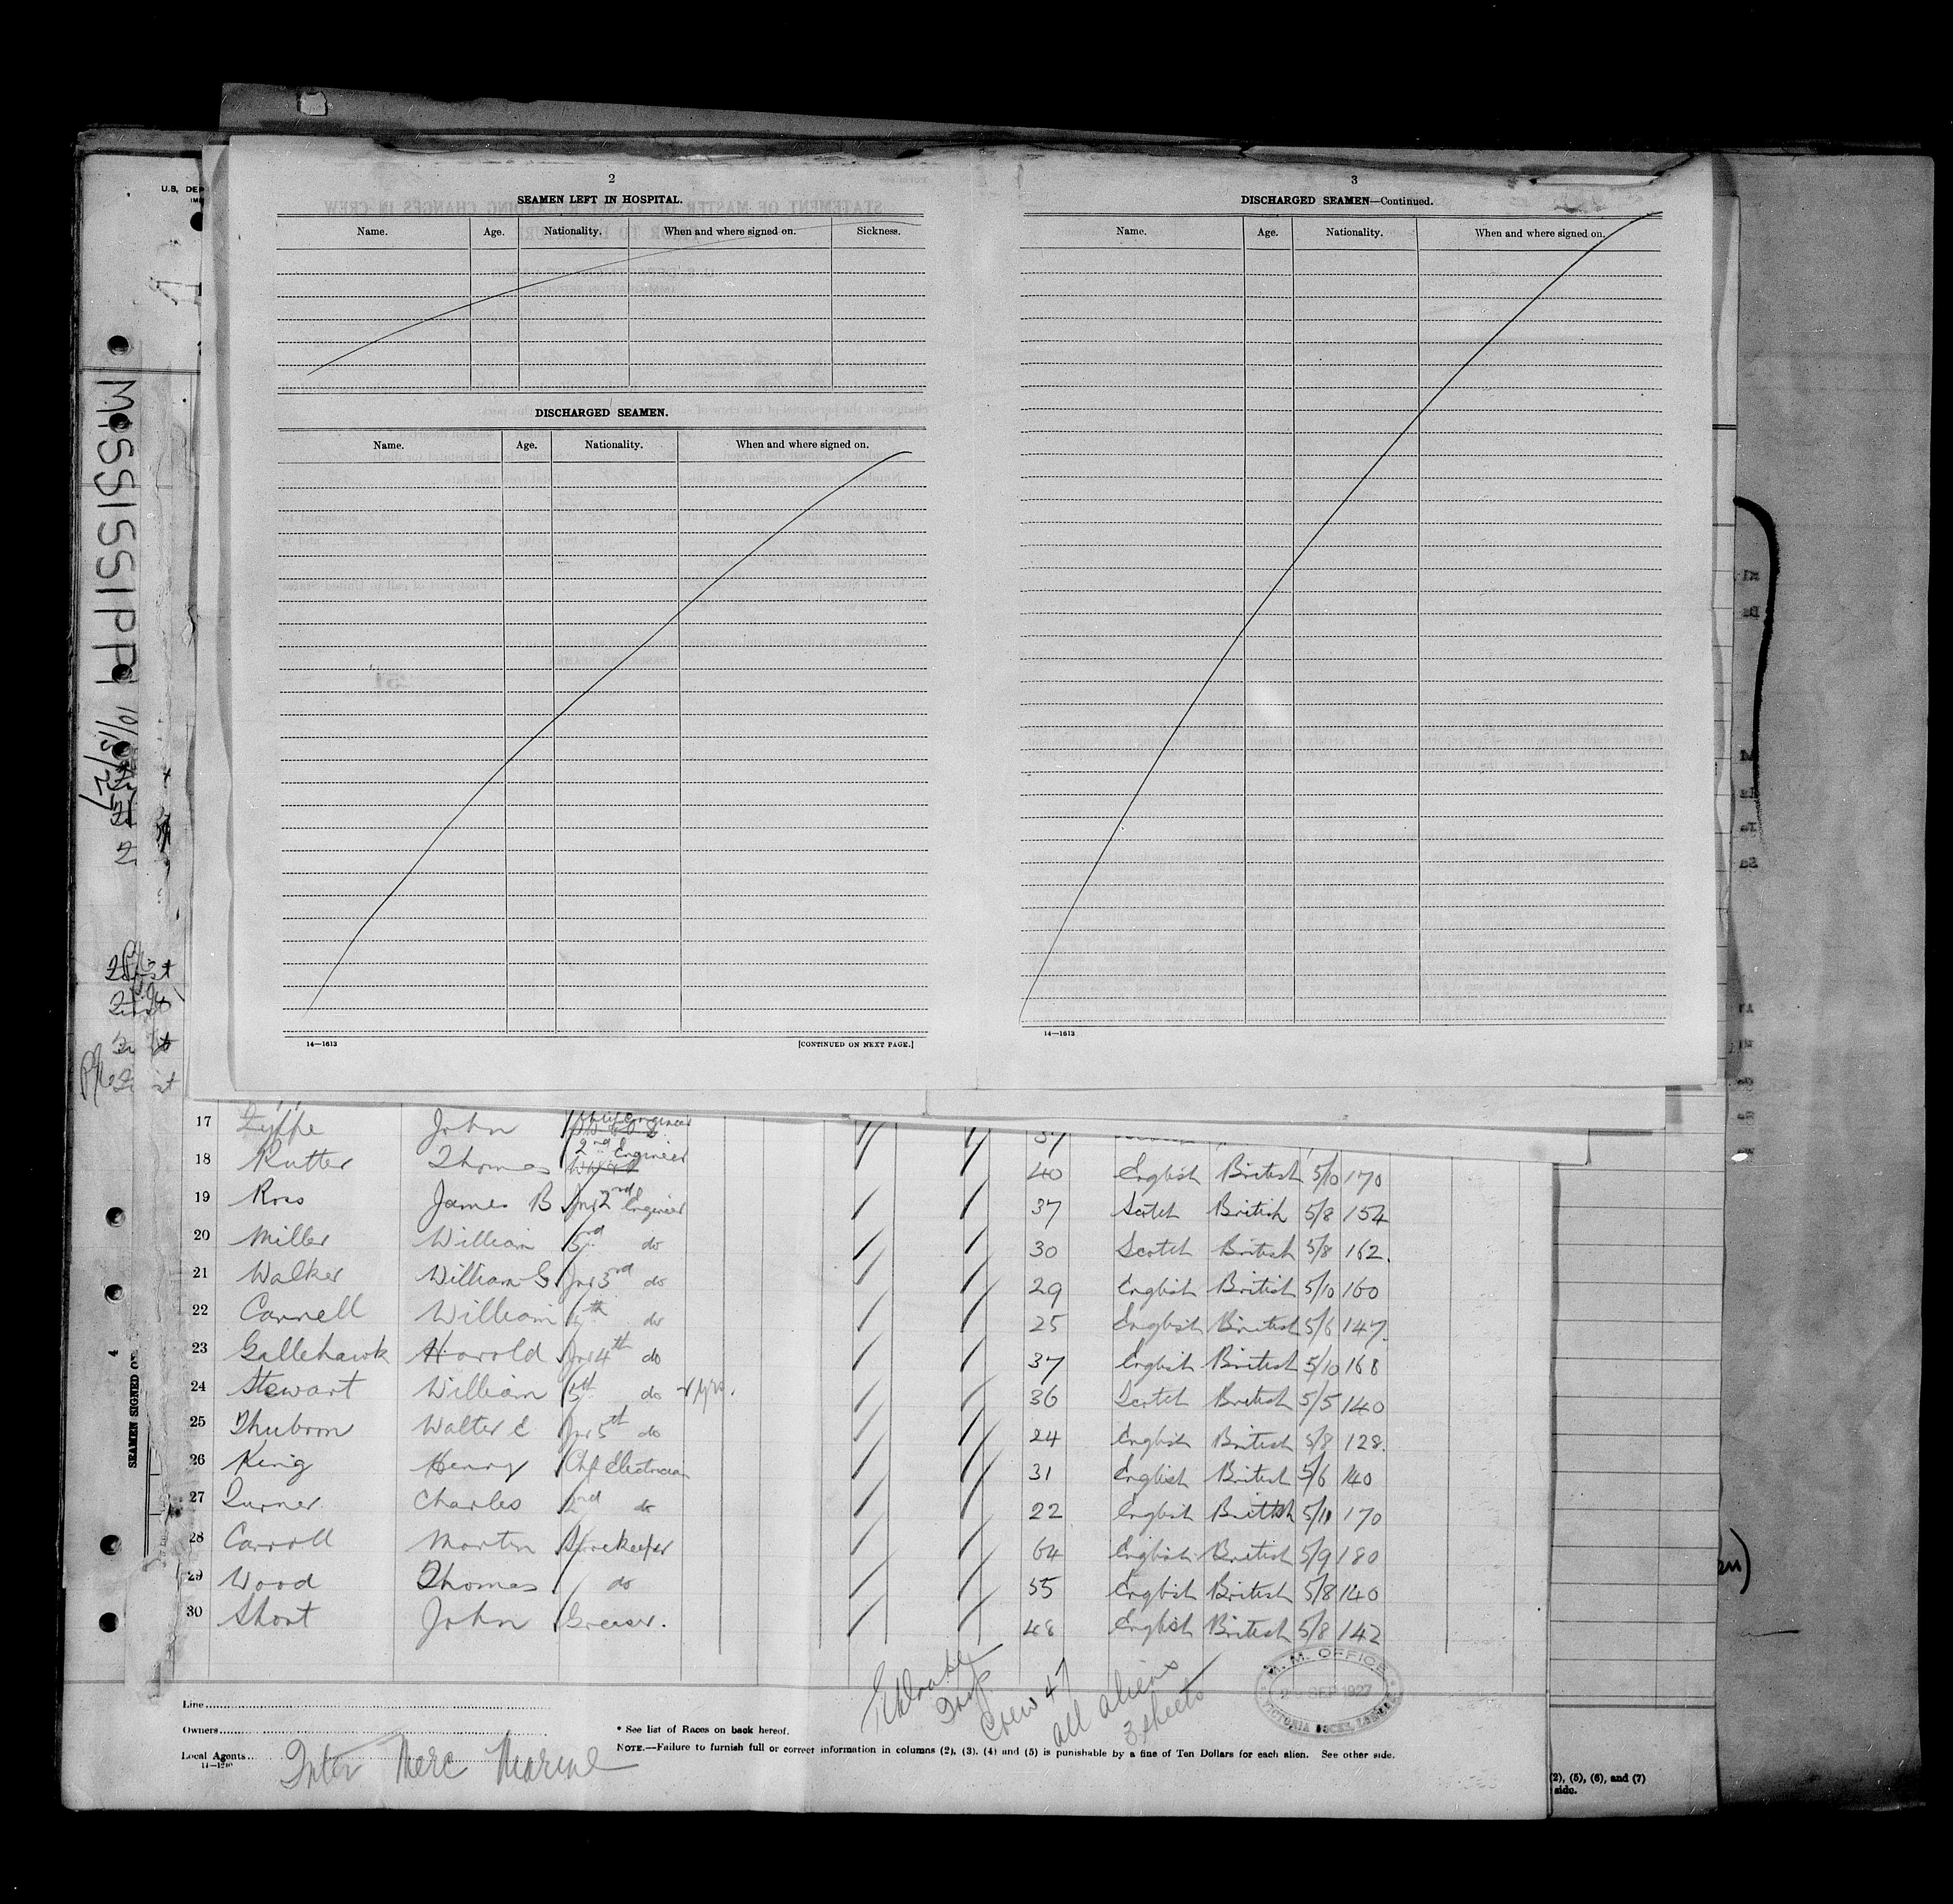 U.S. DEP
MISSISSIPPI 10/15/27
2
SEAMEN LEFT IN HOSPITAL.
Name. Age. Nationality. When and where signed on. Sickness.
DISCHARGED SEAMEN.
Name. Age. Nationality. When and where signed on.
14—1613 [CONTINUED ON NEXT PAGE.]
3
DISCHARGED SEAMEN—Continued.
Name. Age. Nationality. When and where signed on.
14—1613
SEAMEN SIGNED ON
17 John Chief Engineer 37
18 Rutter Thomas 2nd Engineer 40 English British 5/10 170
19 Ross James B Jnr 2nd Engineer 37 Scotch British 5/8 154
20 Miller William 3rd do 30 Scotch British 5/8 162.
21 Walker William G Jnr 3rd do 29 English British 5/10 160
22 Cannell William 4th do 25 English British 5/6 147
23 Gallehawk Harold Jnr 4th do 37 English British 5/10 168
24 Stewart William 5th do 36 Scotch British 5/5 140
25 Thubron Walter E Jnr 5th do 24 English British 5/8 128.
26 King Henry Chf Electrician 31 English British 5/6 140
27 Turner Charles 2nd do 22 English British 5/10 170
28 Carroll Martin Storekeeper 64 English British 5/9 180
29 Wood Thomas do 55 English British 5/8 140
30 Short John Greaser. 48 English British 5/8 142
Crew 47
all aliens
3 sheets
M.M. OFFICE
SEP 1927
VICTORIA DOCKS, LONDON
Line
Owners
* See list of Races on back hereof.
Local Agents Inter Merc Marine
NOTE.—Failure to furnish full or correct information in columns (2), (3), (4) and (5) is punishable by a fine of Ten Dollars for each alien. See other side.
(2), (5), (6), and (7)
side.